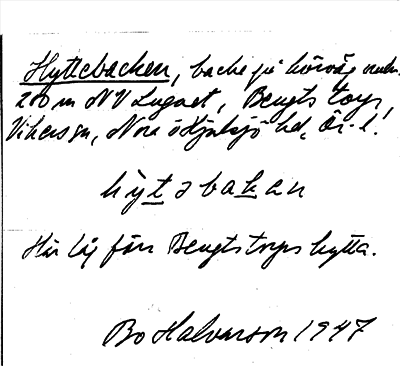 Hyttebacken, backe på körväg omkr.
200 m NV Lugnet, Bengtstorp,
Vikers sn, Nora o Hjulsjö hd, Ör. l.
hỳtəbakan
Här låg förr Bengtstorps hytta.
Bo Halvarson 1947